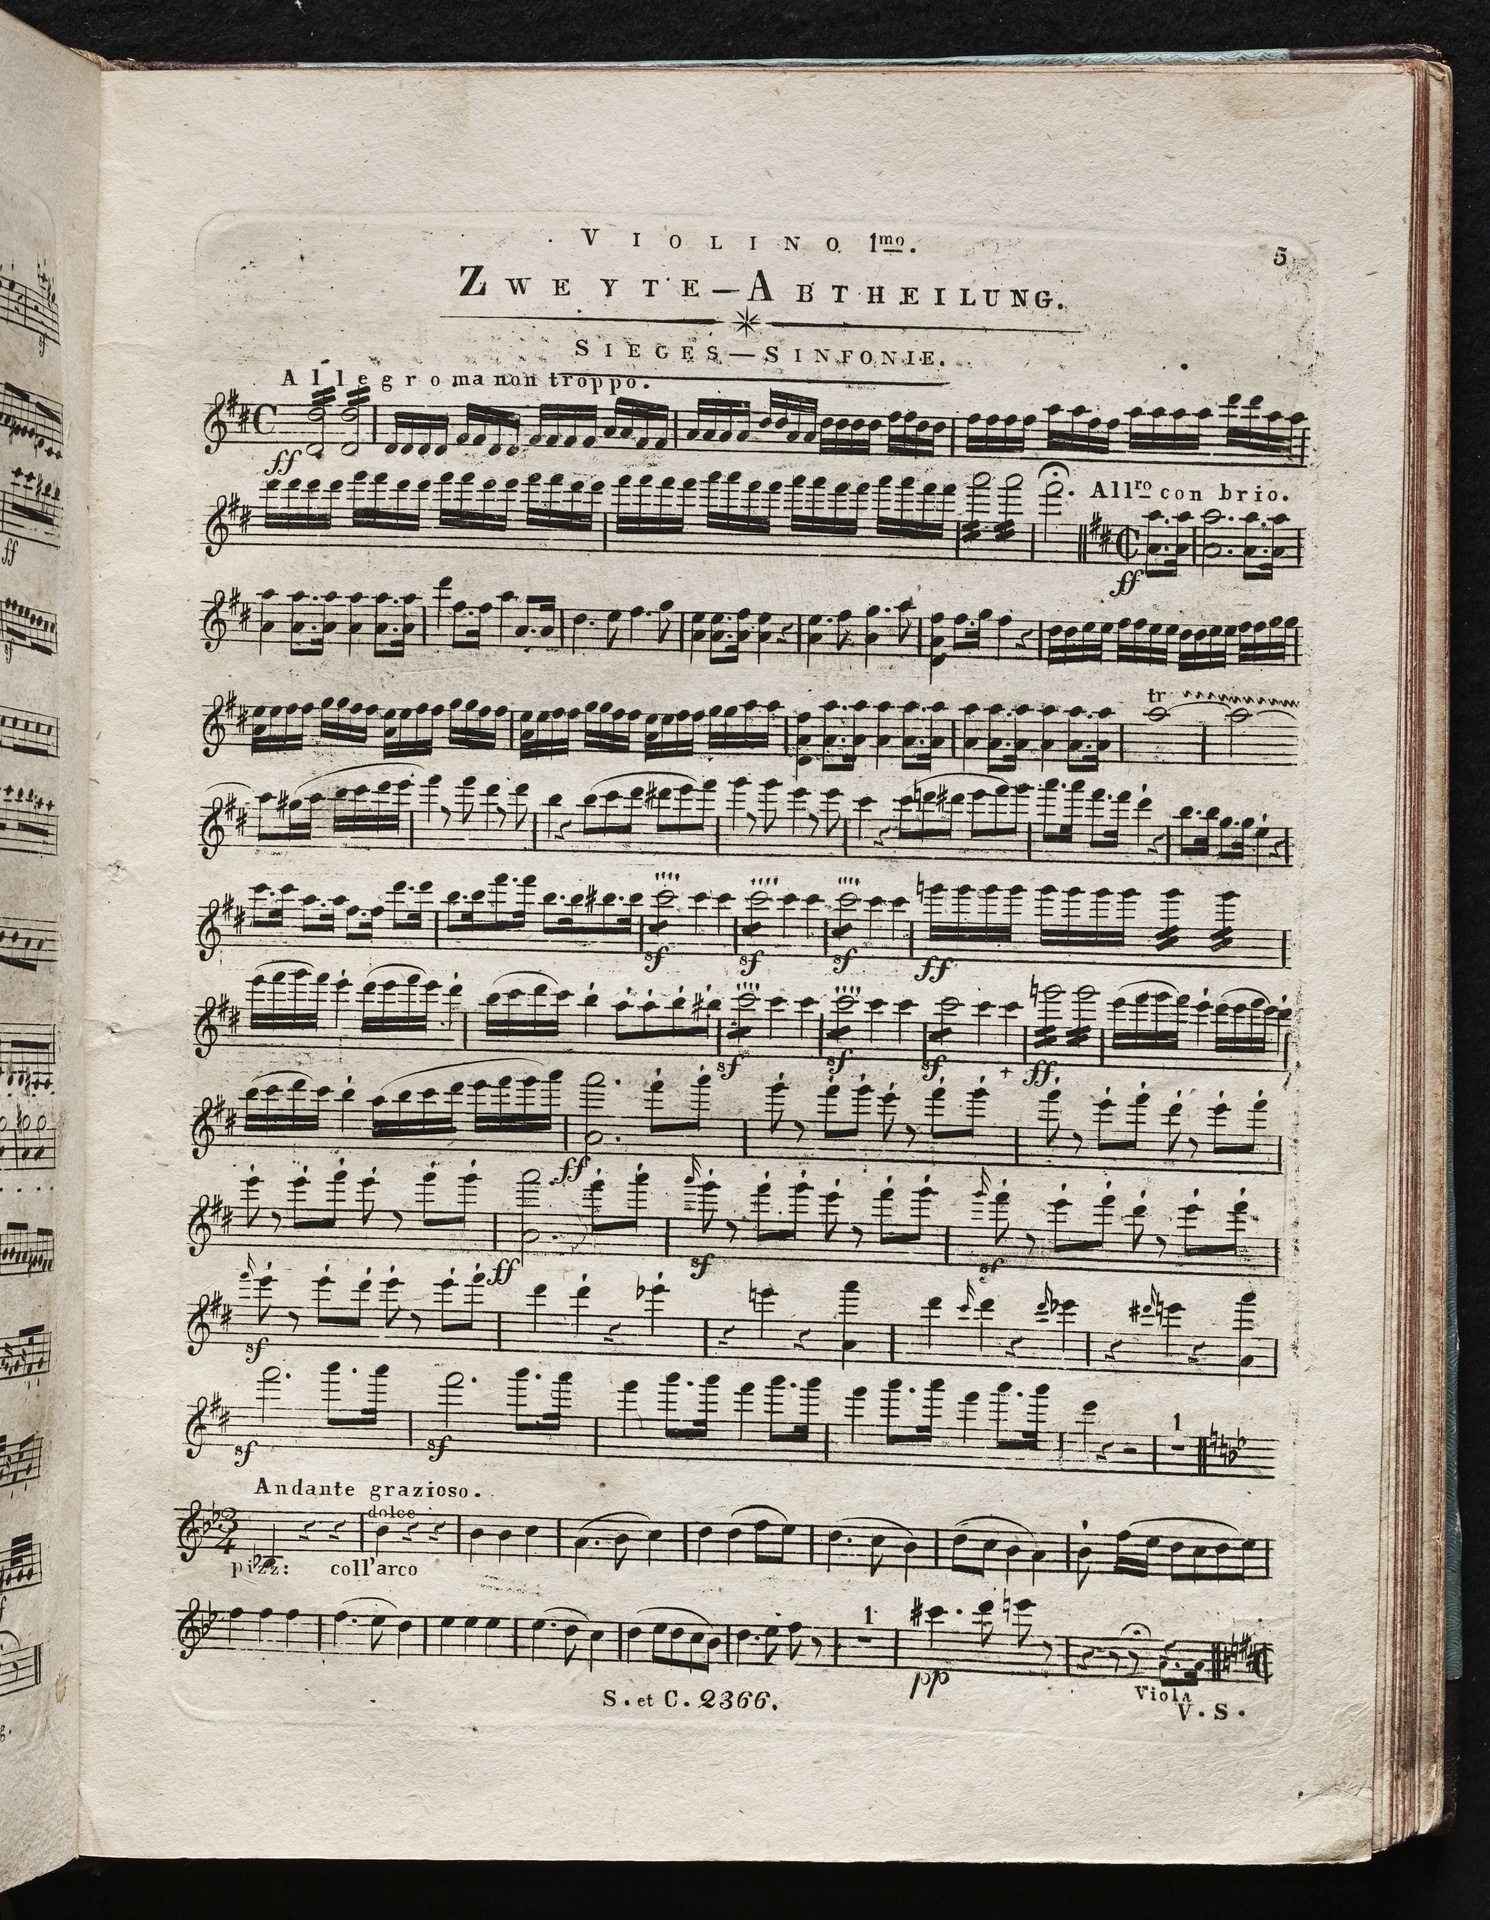 VIOLINO 1mo.
5
ZWEYTE—ABTHEILUNG.
SIEGES—SINFONIE.
Allegro ma non troppo.
ff
Allro con brio.
ff
tr
sf sf sf ff
sf sf sf ff
ff
ff sf sf
sf
sf sf
1
Andante grazioso.
dolce
pizz: coll'arco
1
pp
Viola
S. et C. 2366.
V. S.